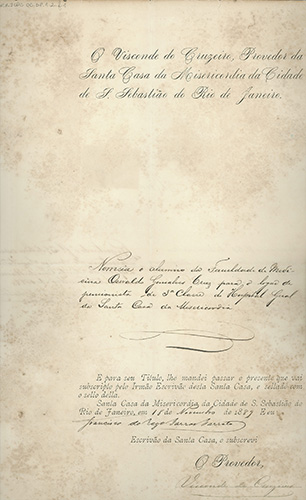 O Visconde do Cruzeiro, Provedor da
Santa Casa da Misericordia da Cidade
de S. Sebastião do Rio de Janeiro.
Nomeia o alumno da Faculdade de Medi
cina Oswaldo Gonçalves Cruz para o logar de
pensionista de 3ª Classe do Hospital Geral
da Santa Casa da Misericordia
E para seu Titulo, lhe mandei passar o presente que vai
subscripto pelo Irmão Escrivão desta Santa Casa, e sellado com
o sello della.
Santa Casa da Misericordia da Cidade de S. Sebastião do
Rio de Janeiro, em de Novembro de 1889 E eu
Francisco do Rego Barros Barreto
Escrivão da Santa Casa, o subscrevi
O Provedor,
Visconde do Cruzeiro